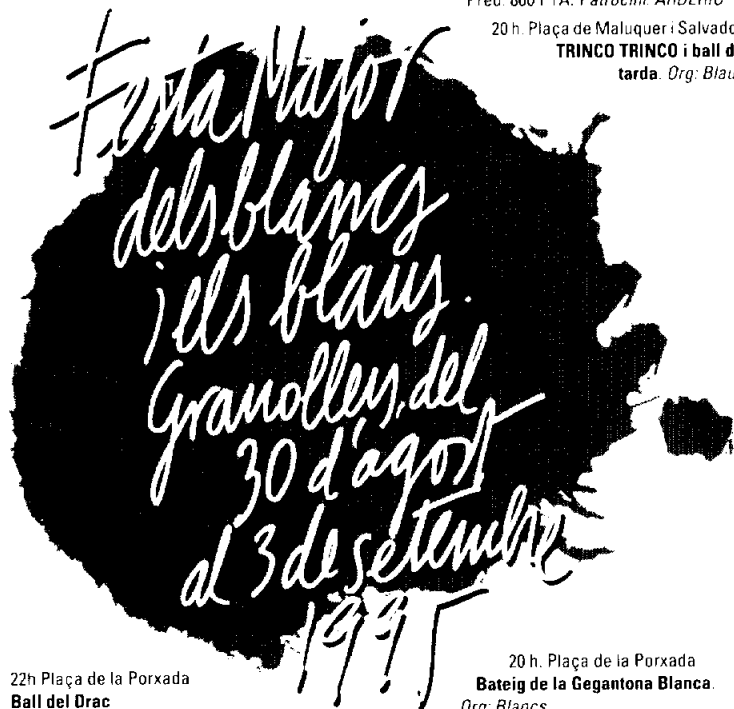 20 h. Plaça de Maluquer i Salvado
TRINCO TRINCO i ball d
tarda. Org: Blau
Festa Major
dels blancs
i els blaus.
Granollers, del
30 d'agost
al 3 de setembre
1995
22h Plaça de la Porxada
Ball del Drac
20 h. Plaça de la Porxada
Bateig de la Gegantona Blanca.
Org: Blancs